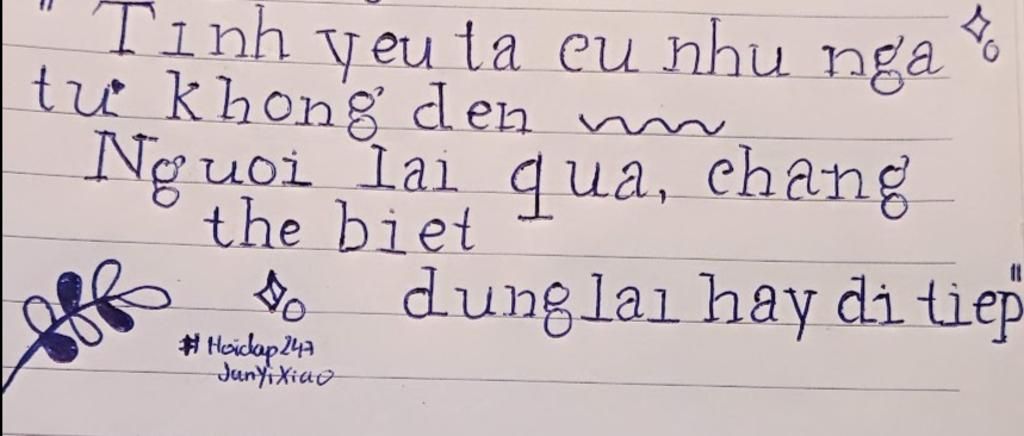 " Tinh yeu ta cu nhu nga
tu khong den
Nguoi lai qua, chang
the biet
dung lai hay di tiep"
# Hoidap247
JunYiXiao